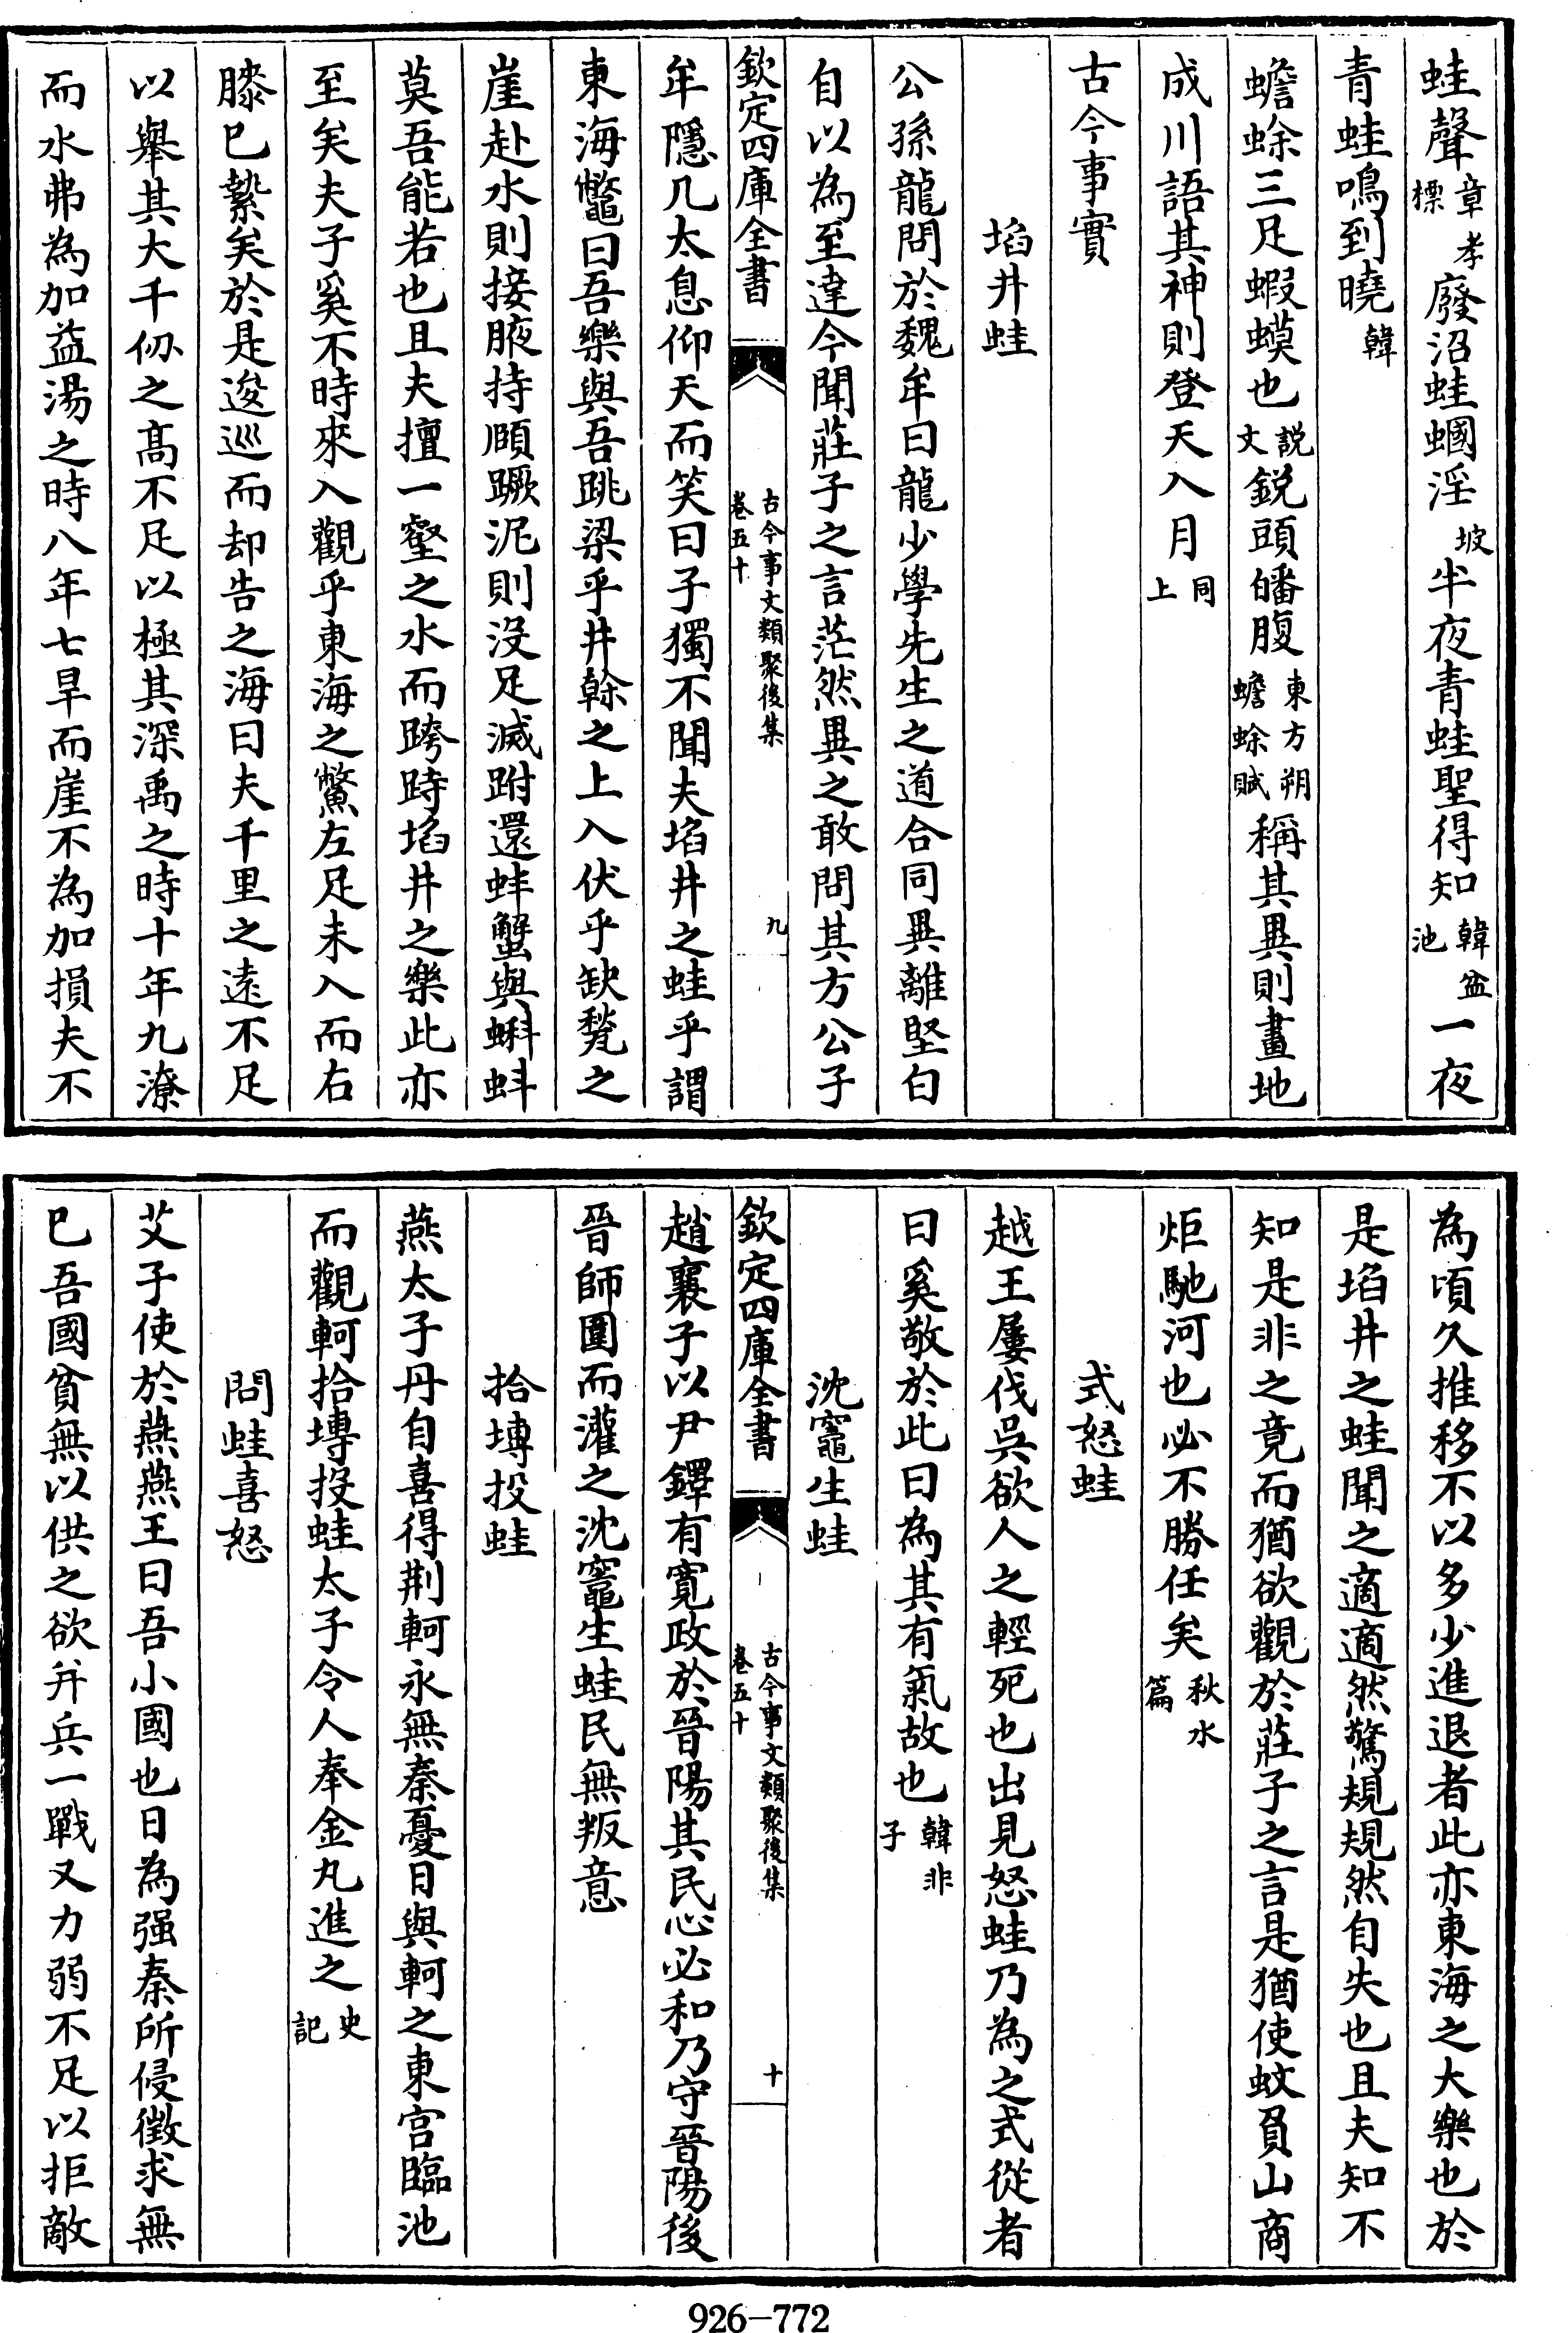 蛙聲章孝標廢沼蛙蟈淫坡半夜青蛙聖得知韓盆池一夜
青蛙鳴到曉韓
蟾蜍三足蝦蟆也説文鋭頭皤腹東方朔蟾蜍賦稱其異則畫地
成川語其神則登天入月同上
古今事實
埳井蛙
公孫龍問於魏牟曰龍少學先生之道合同異離堅白
自以為至達今聞莊子之言茫然異之敢問其方公子
欽定四庫全書
古今事文類聚後集
卷五十
九
牟隱几太息仰天而笑曰子獨不聞夫埳井之蛙乎謂
東海鼈曰吾樂與吾跳梁乎井榦之上入伏乎缺甃之
崖赴水則接腋持頤蹶泥則没足滅跗還蚌蟹與蝌蚪
莫吾能若也且夫擅一壑之水而跨跱埳井之樂此亦
至矣夫子奚不時來入觀乎東海之鱉左足未入而右
膝已縶矣於是逡巡而却告之海曰夫千里之遠不足
以舉其大千仞之髙不足以極其深禹之時十年九潦
而水弗為加益湯之時八年七旱而崖不為加損夫不
為頃久推移不以多少進退者此亦東海之大樂也於
是埳井之蛙聞之適適然驚規規然自失也且夫知不
知是非之竟而猶欲觀於莊子之言是猶使蚊負山商
炬馳河也必不勝任矣秋水篇
式怒蛙
越王屢伐呉欲人之輕死也出見怒蛙乃為之式從者
曰奚敬於此曰為其有氣故也韓非子
沈竈生蛙
欽定四庫全書
古今事文類聚後集
卷五十
十
趙襄子以尹鐸有寛政於晉陽其民心必和乃守晉陽後
晉師圍而灌之沈竈生蛙民無叛意
拾塼投蛙
燕太子丹自喜得荆軻永無秦憂日與軻之東宫臨池
而觀軻拾塼投蛙太子令人奉金丸進之史記
問蛙喜怒
艾子使於燕燕王曰吾小國也日為强秦所侵徴求無
已吾國貧無以供之欲弁兵一戰又力弱不足以拒敵
926-772